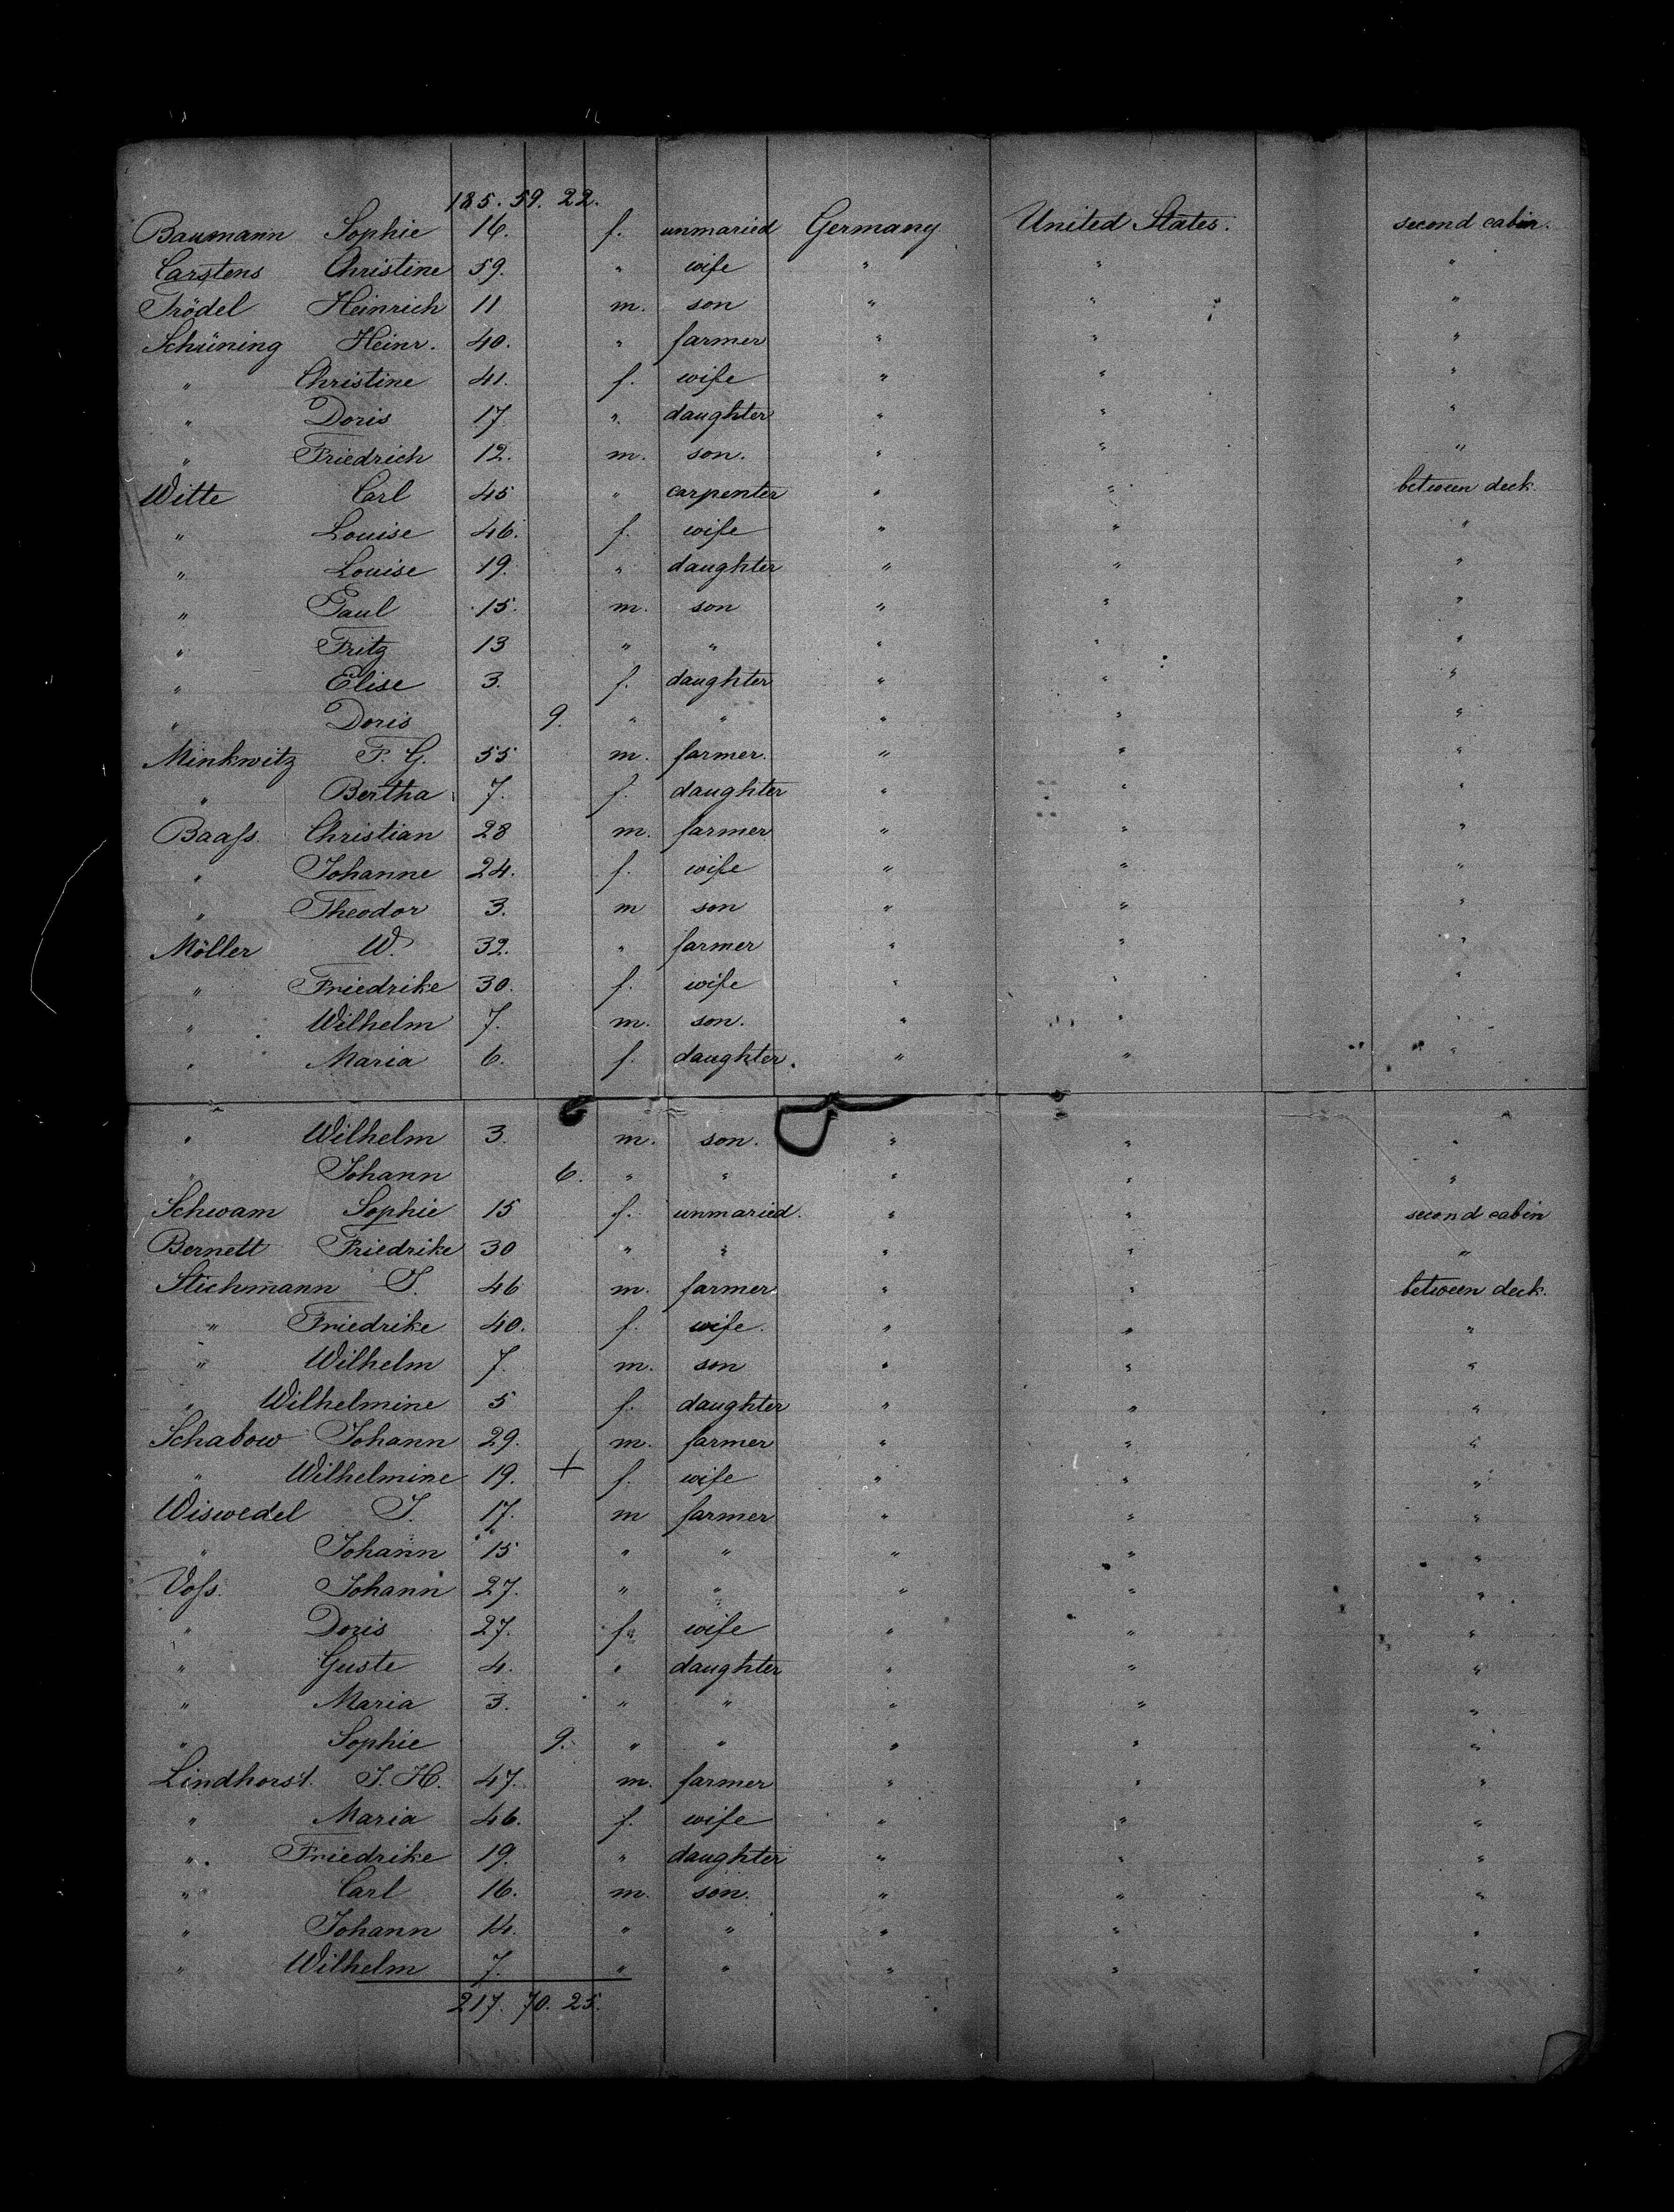 185. 59. 22.
Baumann Sophie 16. f. unmaried Germany United States. second cabin.
Carstens Christine 59. " wife " " "
Trödel Heinrich 11 m. son " " "
Schüning Heinr. 40. " farmer " " "
" Christine 41. f. wife " " "
" Doris 17 " daughter " " "
" Friedrich 12. m. son. " " "
Witte Carl 45 " carpenter " " between deck.
" Louise 46. f. wife " " "
" Louise 19. " daughter " " "
" Paul 15. m. son " " "
" Fritz 13 " " " " "
" Elise 3. f. daughter " " "
" Doris 9. " " " " "
Minkwitz F. G. 55 m. farmer. " " "
" Bertha 7. f. daughter " " "
Baaſs. Christian 28 m. farmer " " "
" Johanne 24. f. wife " " "
" Theodor 3. m son " " "
Möller W. 32. " farmer " " "
" Friedrike 30. f. wife " " "
" Wilhelm 7. m. son. " " "
" Maria 6. f. daughter. " " "
" Wilhelm 3. m. son. " " "
" Johann 6. " " " " "
Schwam Sophie 15 f. unmaried. " " second cabin
Bernett Friedrike 30 " " " " "
Stichmann J. 46 m. farmer " " between deck.
" Friedrike 40. f. wife. " " "
" Wilhelm 7. m. son " " "
" Wilhelmine 5 f. daughter " " "
Schabow Johann 29. m. farmer " " "
" Wilhelmine 19. + f. wife " " "
Wiswedel J. 17. m farmer " " "
" Johann 15 " " " " "
Voſs. Johann 27. " " " " "
" Doris 27. f. wife " " "
" Guste 4. " daughter " " "
" Maria 3. " " " " "
" Sophie 9. " " " " "
Lindhorst. J. H. 47. m. farmer " " "
" Maria 46. f. wife " " "
" Friedrike 19. " daughter " " "
" Carl 16. m. son. " " "
" Johann 14. " " " " "
" Wilhelm 7. " " " " "
217. 70. 25.